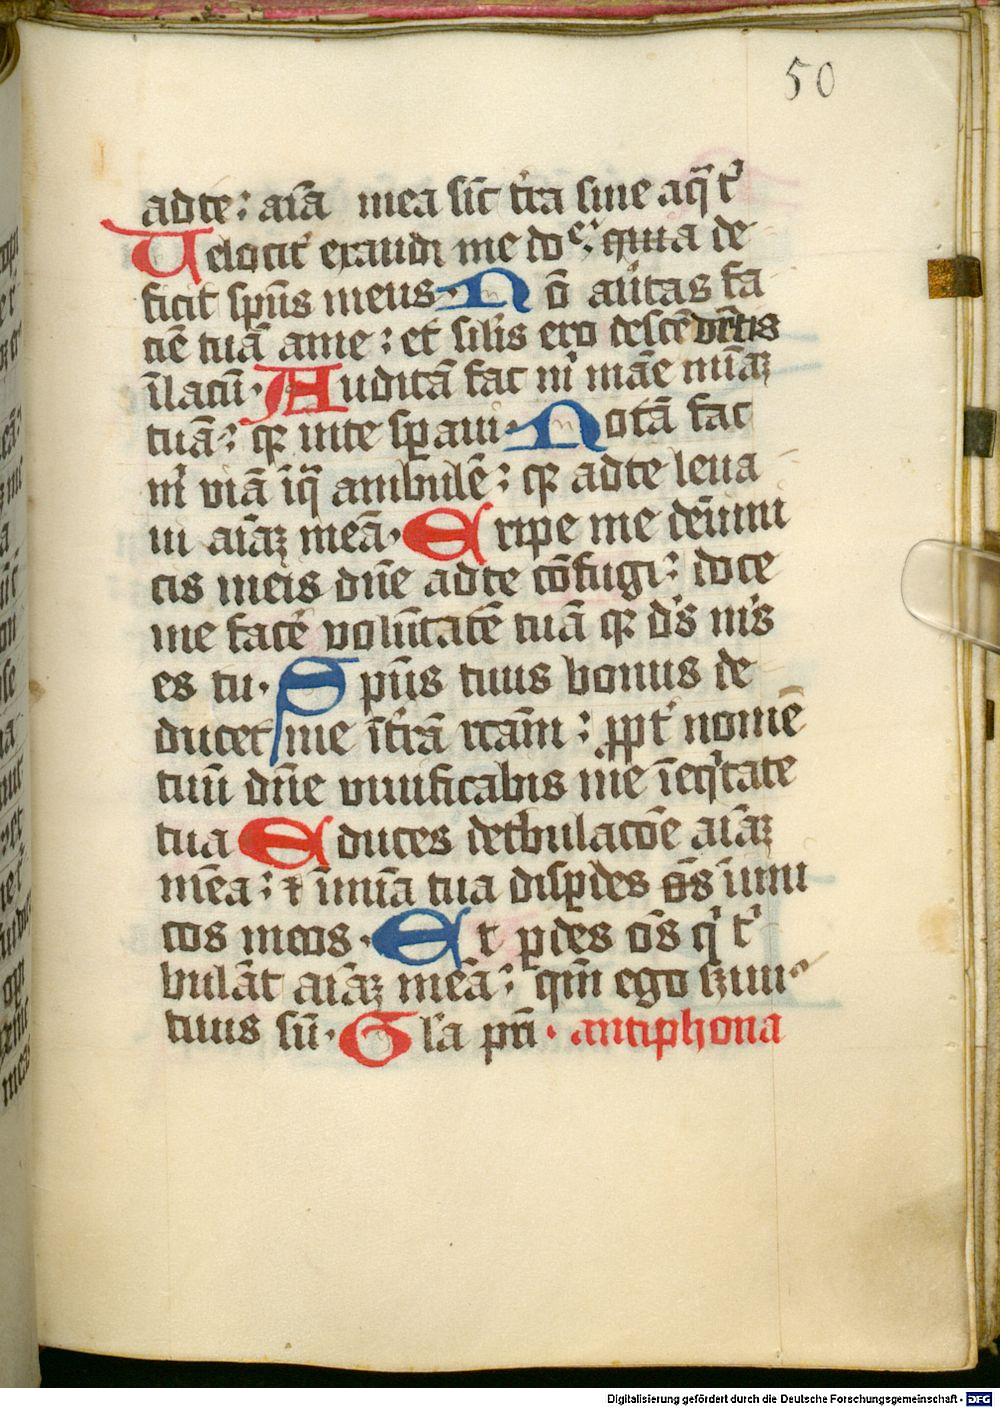 50
adte: aīa mea sic̄ t̄ra sine aq̄ t'
Uelocit' exaudi me do^e: quia de
ficit sp̄us meus. No̅ au̅tas fa
ciē tuā ame: et sil̄is ero descēdētis
īlacū. Auditā fac m' māe mīaꝫ
tuā: qꝛ inte sꝑaui. Notā fac
m' viā īq̄ ambulē: qꝛ adte leua
ui aīaꝫ meā. Eripe me deīimi
cis meis dn̄e adte cōfugi: doce
me facē volūtatē tuā qꝛ d's m's
es tu. Sp̄us tuus bonus de
ducet me īt'rā rcām: ꝓpt' nomē
tuū dn̄e uiuificabis me īeq'tate
tua Educes det'bulacōe aīaꝫ
mēa: ⁊ īmīa tua disꝑdes om̄s īimi
cos meos. Et ꝑdes om̄s q' t'
bulāt aīaꝫ meā: qm̄ ego ẜuus
tuus sū. Gl'a pr̄i. antiphona
Digitalisierung gefördert durch die Deutsche Forschungsgemeinschaft - DFG